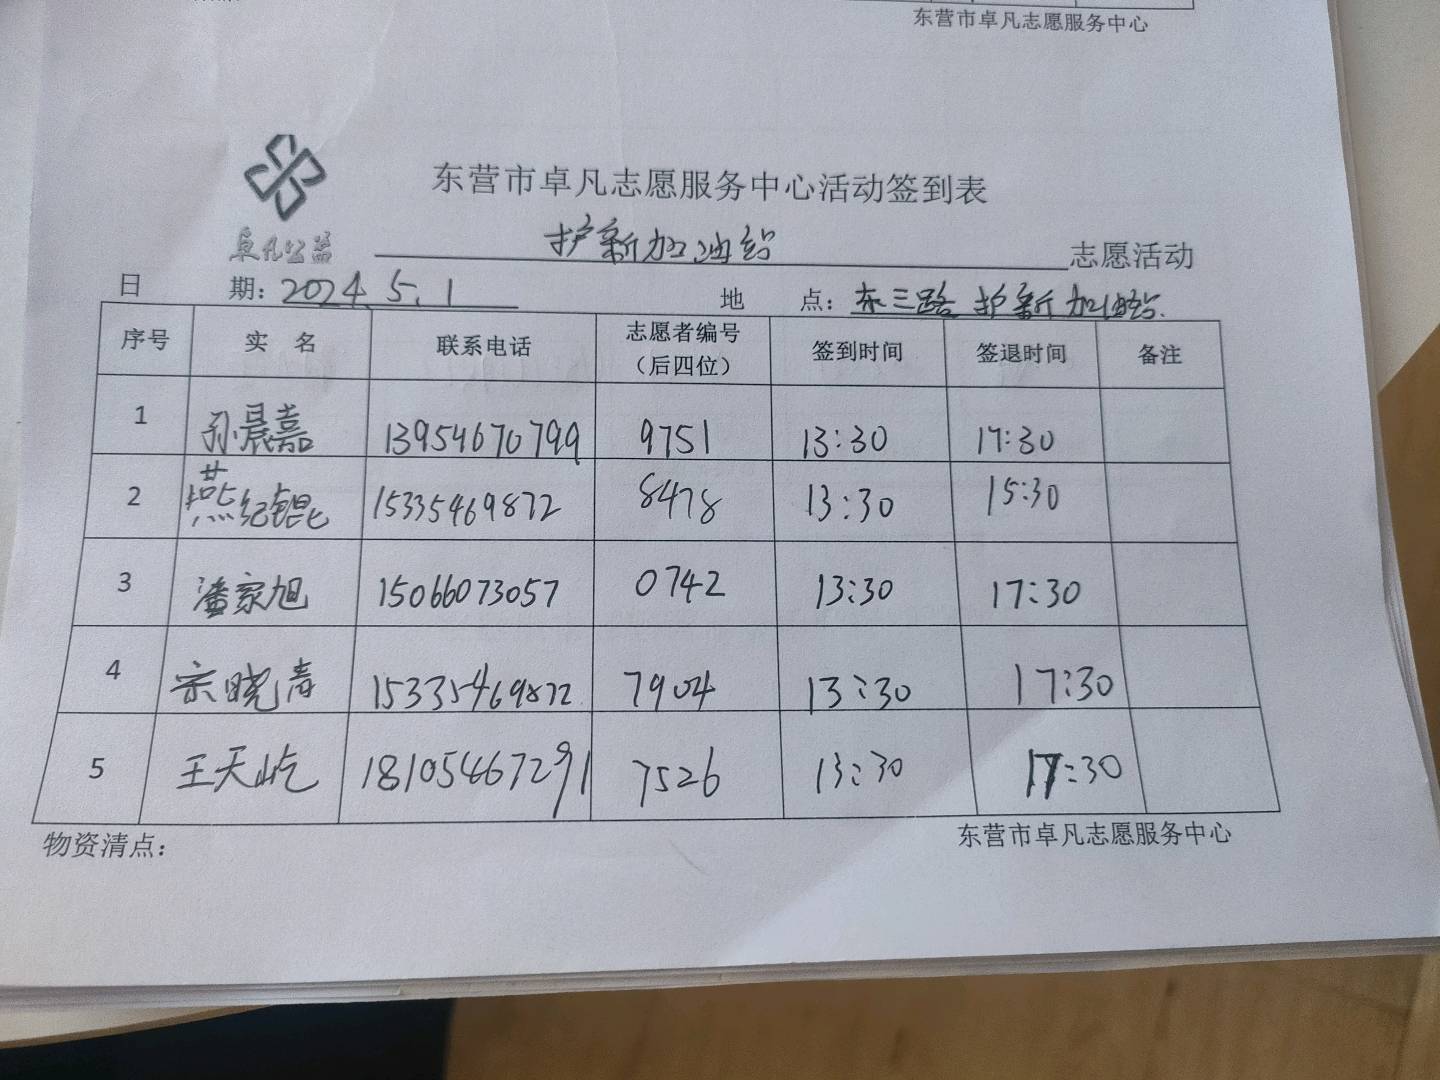 东营市卓凡志愿服务中心
东营市卓凡志愿服务中心活动签到表
卓凡公益
护新加油站 志愿活动
日 期：2024.5.1 地 点：东三路护新加油站
序号 实 名 联系电话 志愿者编号（后四位） 签到时间 签退时间 备注
1 孙晨嘉 13954670799 9751 13:30 17:30
2 燕纪锟 15335469872 8478 13:30 15:30
3 潘家旭 15066073057 0742 13:30 17:30
4 宗晓青 15335469872 7904 13:30 17:30
5 王天屹 18105467291 7526 13:30 17:30
物资清点： 东营市卓凡志愿服务中心